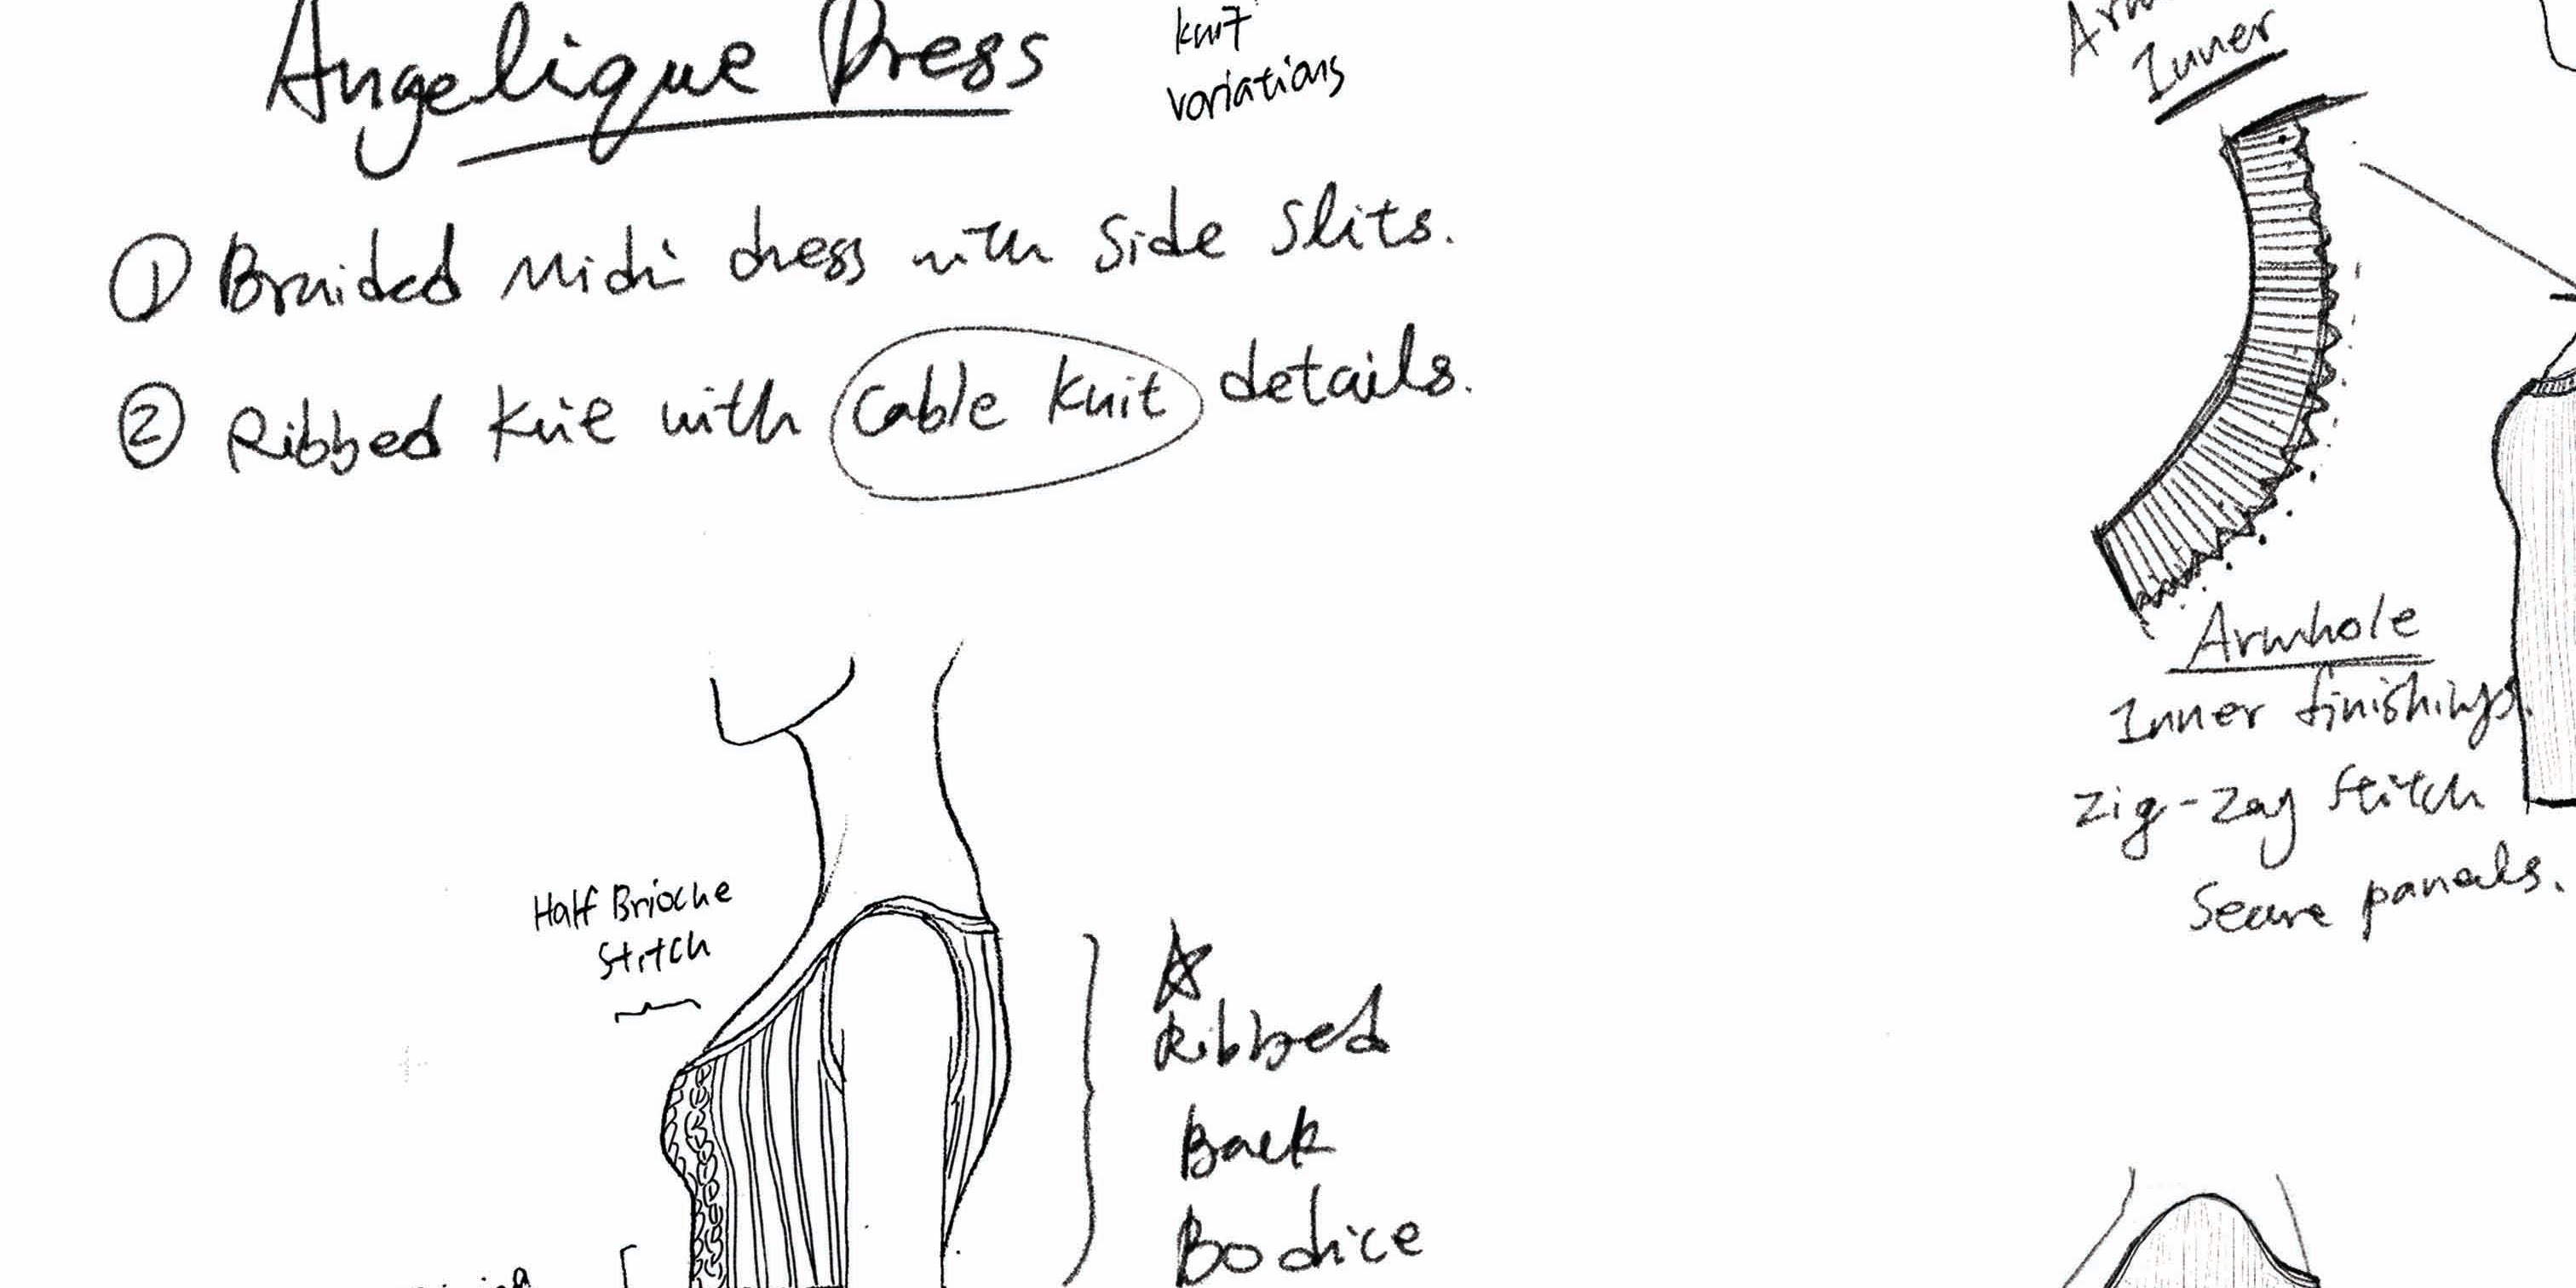 Angelique Dress
knit
variations
① Braided Midi dress with Side Slits.
② Ribbed Knit with Cable Knit details.
Inner
Armhole
Inner finishings.
Zig-Zag Stitch
Secure panels.
Half Brioche
Stitch
Ribbed
Back
Bodice